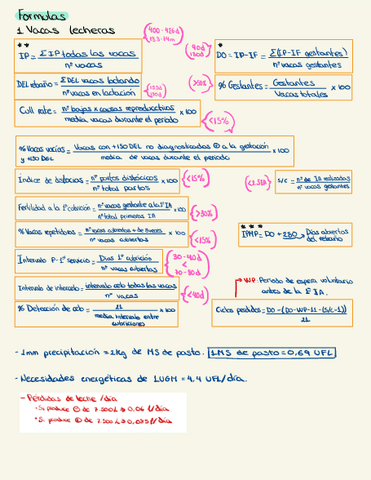 Formulas
1 Vacas lecheras
400-426d
13.3-14m
**
IP = Σ IP todas las vacas / nº vacas
90d
120d
**
DO = IP-IF = Σ(IP-IF gestantes) / nº vacas gestantes
DEL rebaño = Σ DEL vacas lactando / nº vacas en lactación
% Gestantes = Gestantes / Vacas totales x 100
Cull rate = nº bajas x causas reproductivas / media vacas durante el periodo x 100
<15%
% Vacas vacías y +150 DEL = Vacas con +150 DEL no diagnosticadas ⊕ a la gestación / media de vacas durante el periodo x 100
Indice de distocias = nº partos distócicos / nº total partos x 100
<15%
S/C = nº de IA realizadas / nº vacas gestantes
Fertilidad a la 1ª cubrición = nº vacas gestante a la 1ª IA / nº total primeras IA x 100
>30%
% Vacas repetidoras = nº vacas abiertas + de 3 veces / nº vacas abiertas x 100
<15%
***
IPMP = DO + 280 → Días abiertos del rebaño
Intervalo P-1º servicio = Días 1ª cubrición / nº vacas abiertas
30-40d
<
70-80d
Intervalo de intervalo = intervalo celo todas las vacas / nº vacas
<40d
→ WP: Periodo de espera voluntario antes de la 1ª IA.
% Detección de celo = 21 / media intervalo entre cubriciones x 100
Ciclos perdidos = DO-(DO-WP-11-(S/C-1)) / 21
- 1mm precipitación = 2Kg de MS de pasto. 1MS de pasto = 0,69 UFL
- Necesidades energéticas de 1UGM = 4,4 UFL/día.
- Pérdidas de leche / día